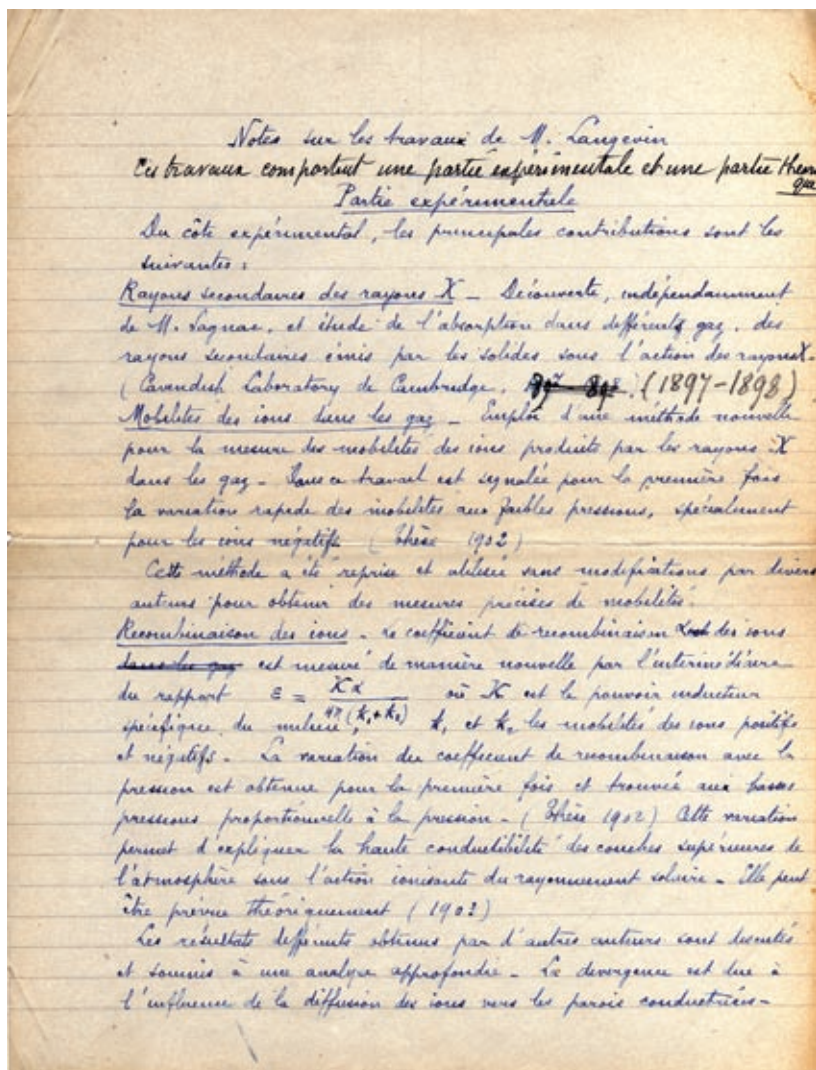 Notes sur les travaux de M. Langevin
Ces travaux comportent une partie expérimentale et une partie théori
que
Partie expérimentale
Du côté expérimental, les principales contributions sont les
suivantes :
Rayons secondaires des rayons X _ Découverte, indépendamment
de M. Sagnac, et étude de l'absorption dans différents gaz, des
rayons secondaires émis par les solides sous l'action des rayons X.
(Cavendish Laboratory de Cambridge, (1897-1898)
Mobilités des ions dans les gaz _ Emploi d'une méthode nouvelle
pour la mesure des mobilités des ions produits par les rayons X
dans les gaz _ Dans ce travail est signalée pour la première fois
la variation rapide des mobilités aux faibles pressions, spécialement
pour les ions négatifs (Thèse 1902)
Cette méthode a été reprise et utilisée sans modifications par divers
auteurs pour obtenir des mesures précises de mobilités.
Recombinaison des ions _ Le coefficient de recombinaison des ions
dans les gaz est mesuré de manière nouvelle par l'intermédiaire
du rapport ε = Kα / 4π(k₁+k₂) où K est le pouvoir inducteur
spécifique du milieu, k₁ et k₂ les mobilités des ions positifs
et négatifs _ La variation du coefficient de recombinaison avec la
pression est obtenue pour la première fois et trouvée aux basses
pressions proportionnelle à la pression _ (Thèse 1902) Cette variation
permet d'expliquer la haute conductibilité des couches supérieures de
l'atmosphère sous l'action ionisante du rayonnement solaire _ Elle peut
être prévue théoriquement (1903)
Les résultats différents obtenus par d'autres auteurs sont discutés
et soumis à une analyse approfondie _ La divergence est due à
l'influence de la diffusion des ions vers les parois conductrices _